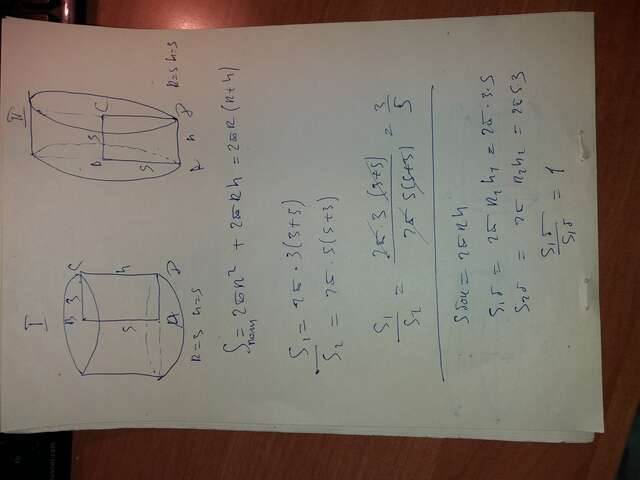 I
II
B 3 C
5
h
A D
R=3 h=5
B 5 C
5
A h D
R=5 h=3
Sполн = 2πR² + 2πRh = 2πR(R+h)
S₁ = 2π · 3(3+5)
S₂ = 2π · 5(5+3)
S₁/S₂ = 2π · 3 (3+5) / 2π 5(5+3) = 3/5
Sбок = 2πRh
S₁б = 2π R₁h₁ = 2π·3·5
S₂б = 2π R₂h₂ = 2π53
S₁б/S₁б = 1